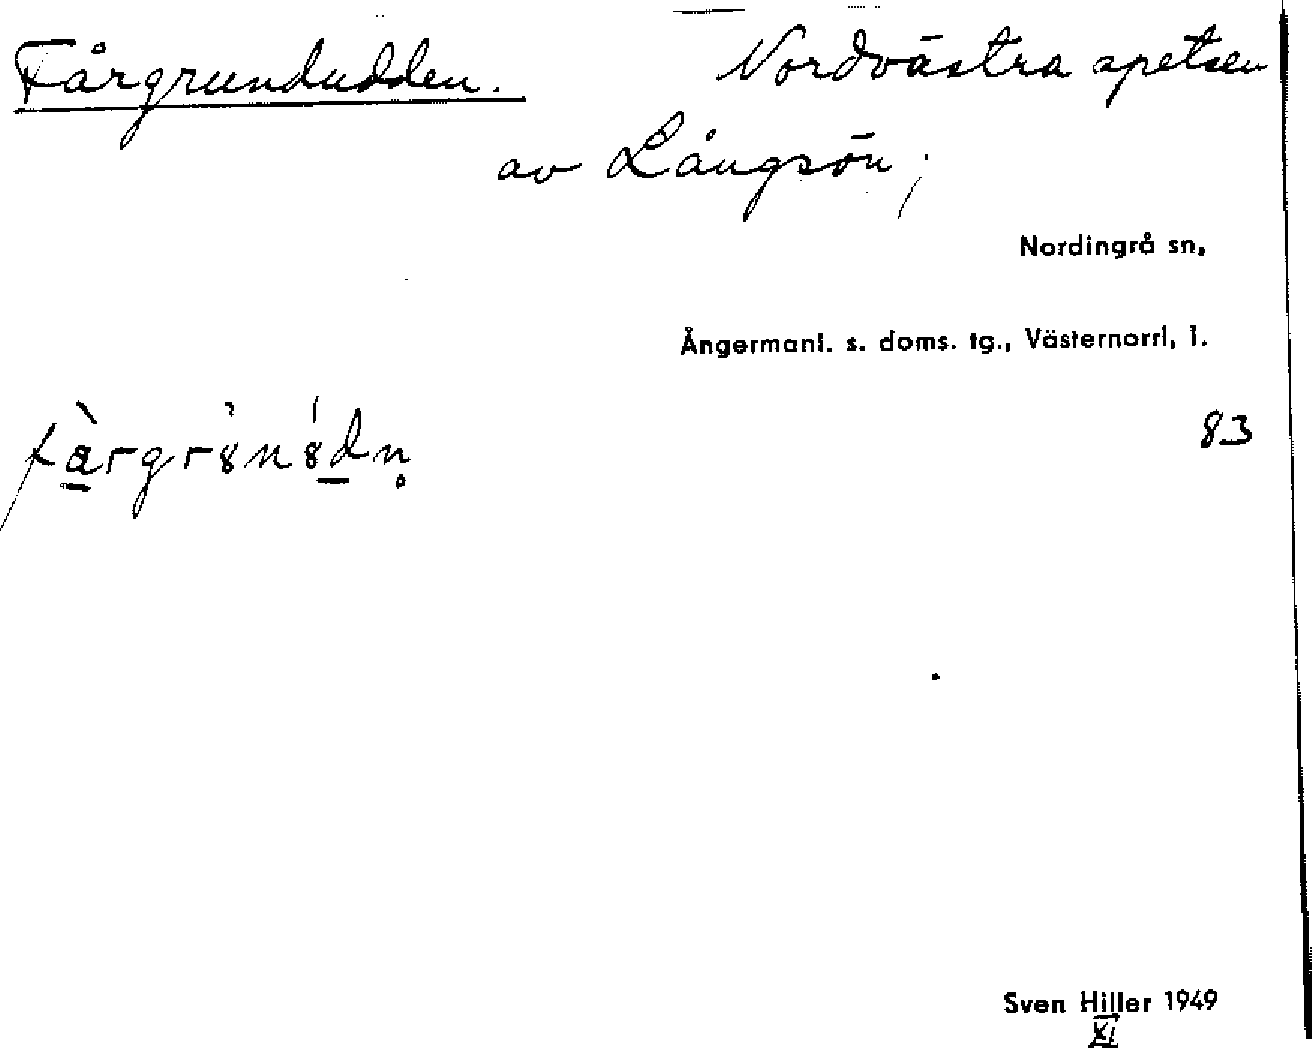 Fårgrundudden. Nordvästra spetsen
av Långsön;
Nordingrå sn,
Ångermanl. s. doms. tg., Västernorrl, l.
83
Sven Hiller 1949
XI